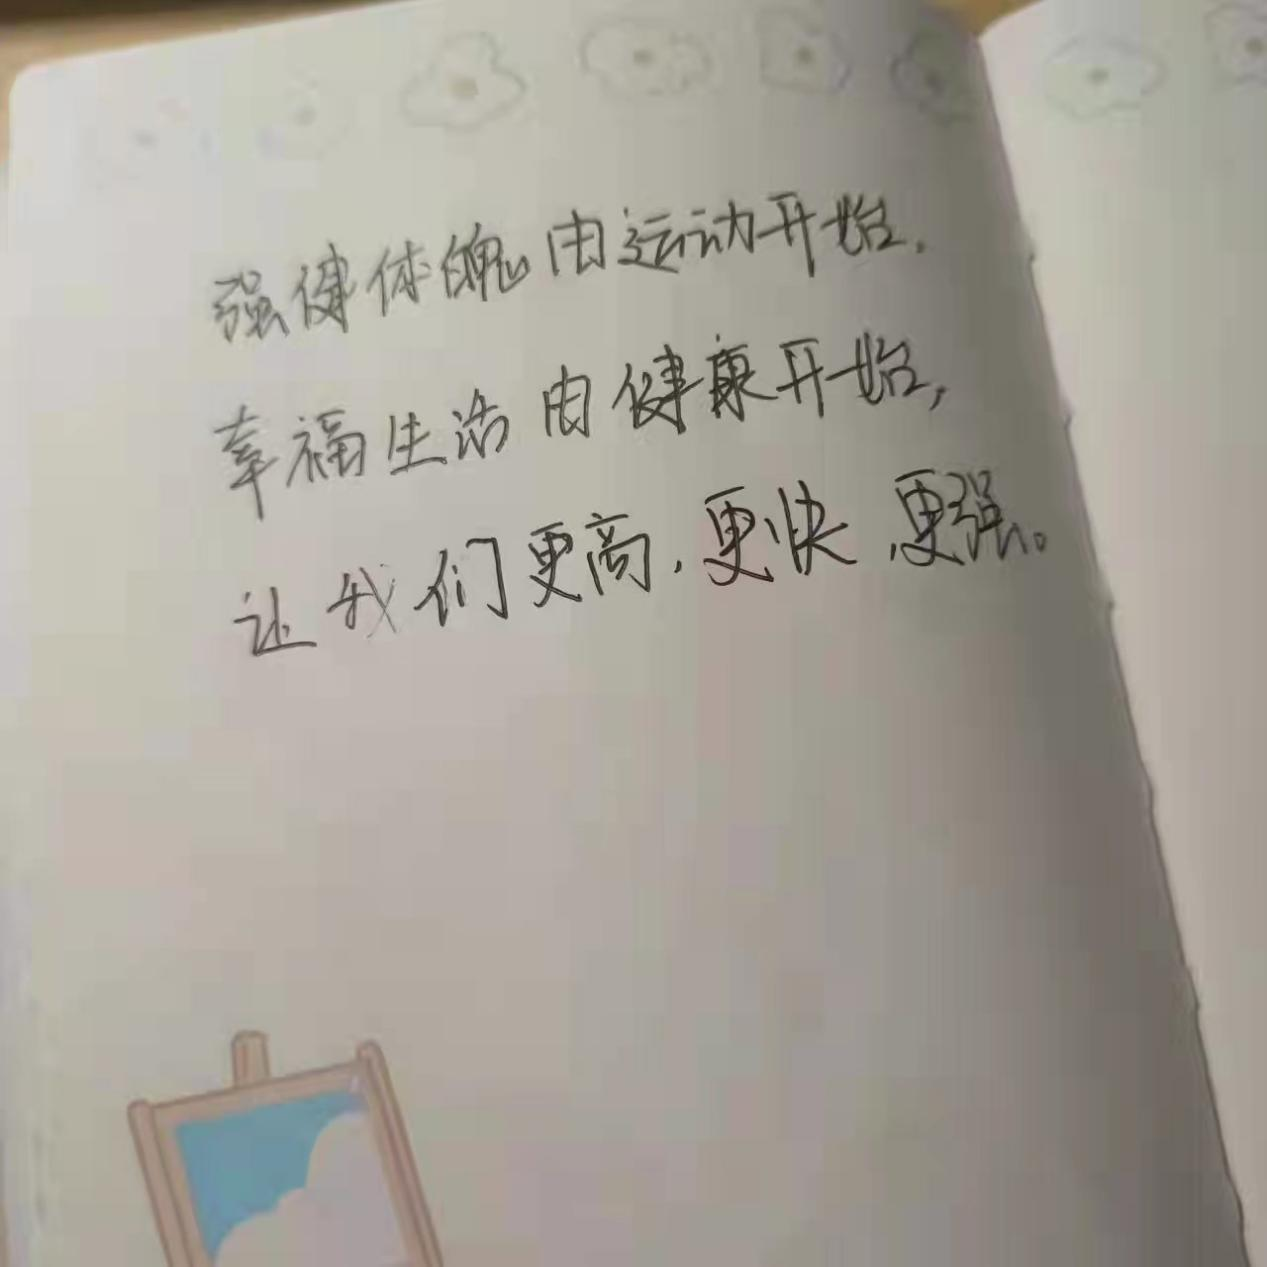 强健体魄由运动开始.
幸福生活由健康开始,
让我们更高.更快.更强。